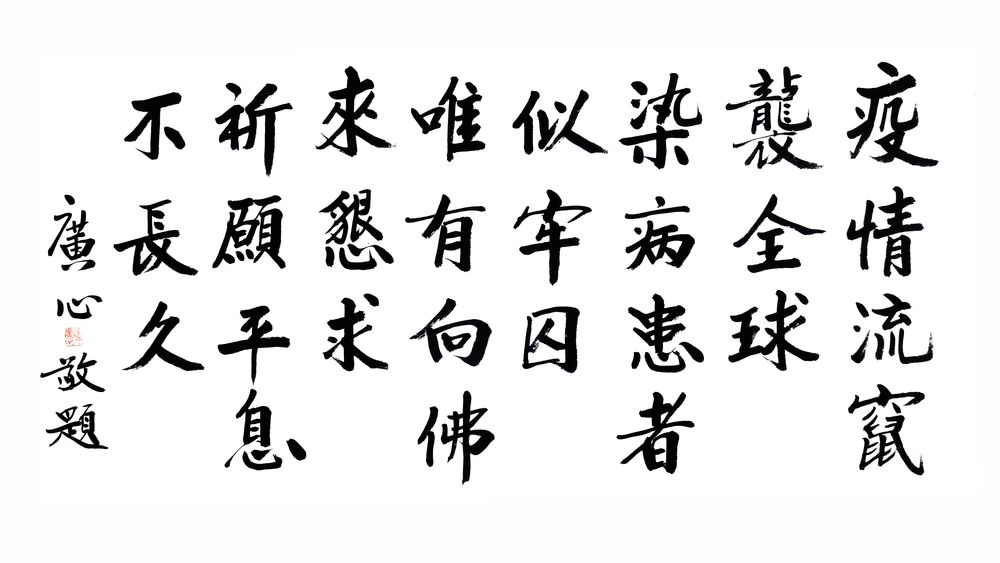 疫情流竄
襲全球
染病患者
似牢囚
唯有向佛
來懇求
祈願平息
不長久
廣心敬題